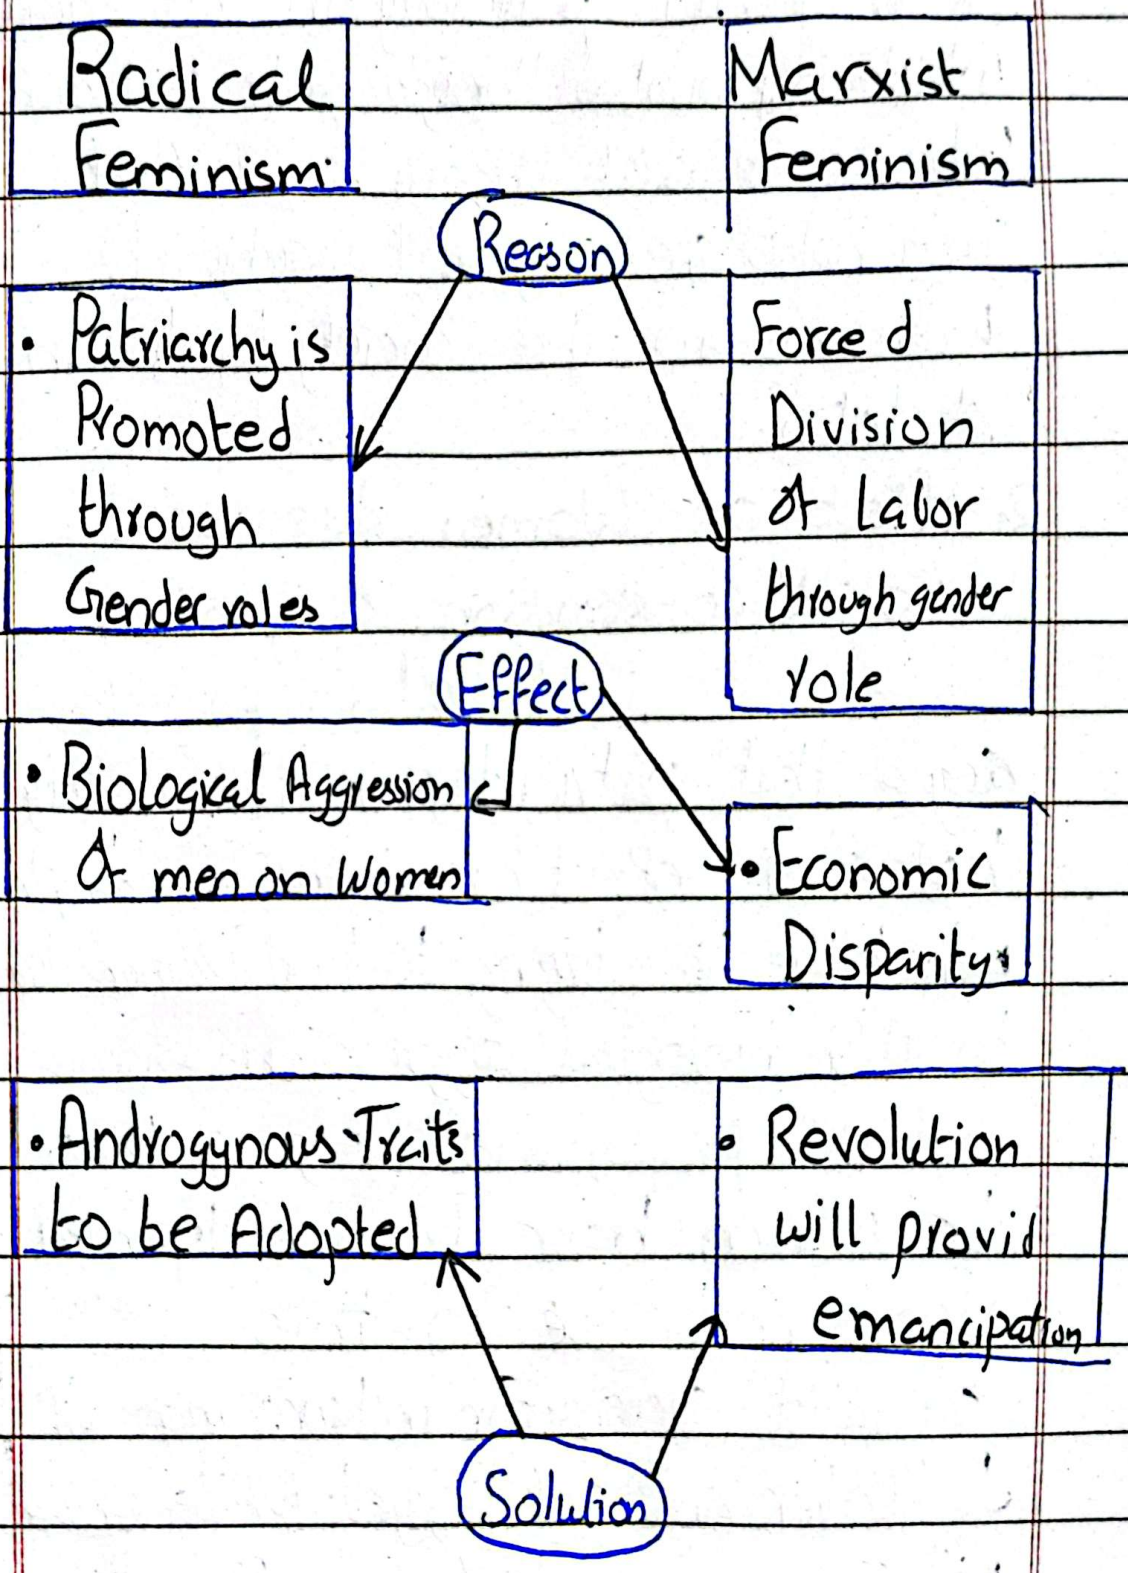 Radical
Feminism.
Marxist
Feminism
Reason
• Patriarchy is
Promoted
through
Gender roles
Forced
Division
Of Labor
through gender
role
Effect
• Biological Aggression
Of men on Women
• Economic
Disparity.
• Androgynous Traits
to be Adopted
• Revolution
will provid
emancipation
Solution